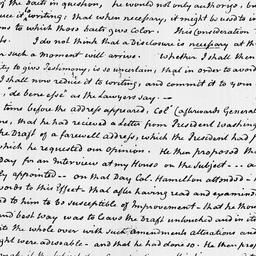 of the said in question, he would not only authorise, bu
uce it writing; that when necessary, it might be used to
ons to which those facts give color. This consideration
I do not think that a Disclosure is necessary at th
such a moment will arrive. Whether I shall then
ty to give testimony is so uncertain, that in order to avoid
I shall now reduce it to writing, and commit it to your
de bene esse' as the Lawyers say. —
time before the address appeared, Col. (afterwards General
me, that he had recieved a Letter from President Washing
the Draft of a farewell address, which the President had
which he requested our Opinion. He then proposed th
Day for an Interview at my House on the Subject
ly appointed — on that Day Col. Hamilton attended
words to this Effect that after having read and examined
ed to him to be susceptible of Improvement - that he thou
and best way was to leave the Draft untouched and in it
ite the whole over with such amendments alterations and
ght were advisable - and that he had done so. He then prop